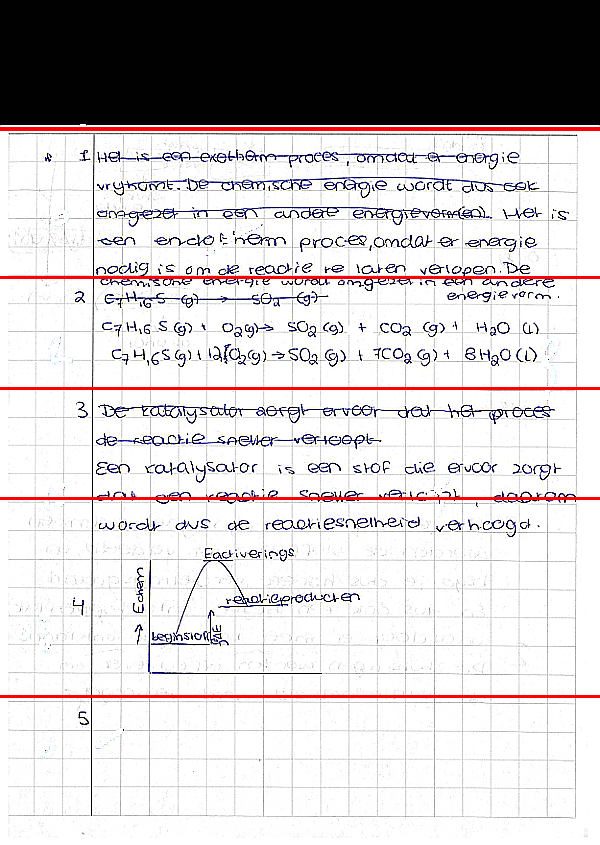 1 Het is een exotherm proces, omdat er energie
vrijkomt. De chemische energie wordt dus ook
omgezet in een andere energievorm(en). Het is
een endotherm proces, omdat er energie
nodig is om de reactie te laten verlopen. De
chemische energie wordt omgezet in een andere
energievorm.
2 C7H16S (g) → SO2 (g)
C7H16S (g) + O2(g) → SO2 (g) + CO2 (g) + H2O (l)
C7H16S(g) + 12 O2(g) → SO2(g) + 7CO2(g) + 8H2O(l)
3 De katalysator zorgt ervoor dat het proces
de reactie sneller verloopt
Een katalysator is een stof die ervoor zorgt
dat een reactie sneller verloopt, daarom
wordt dus de reactiesnelheid verhoogd.
Eactiverings
4
↑ Echem
reactieproducten
beginstof
ΔE
5